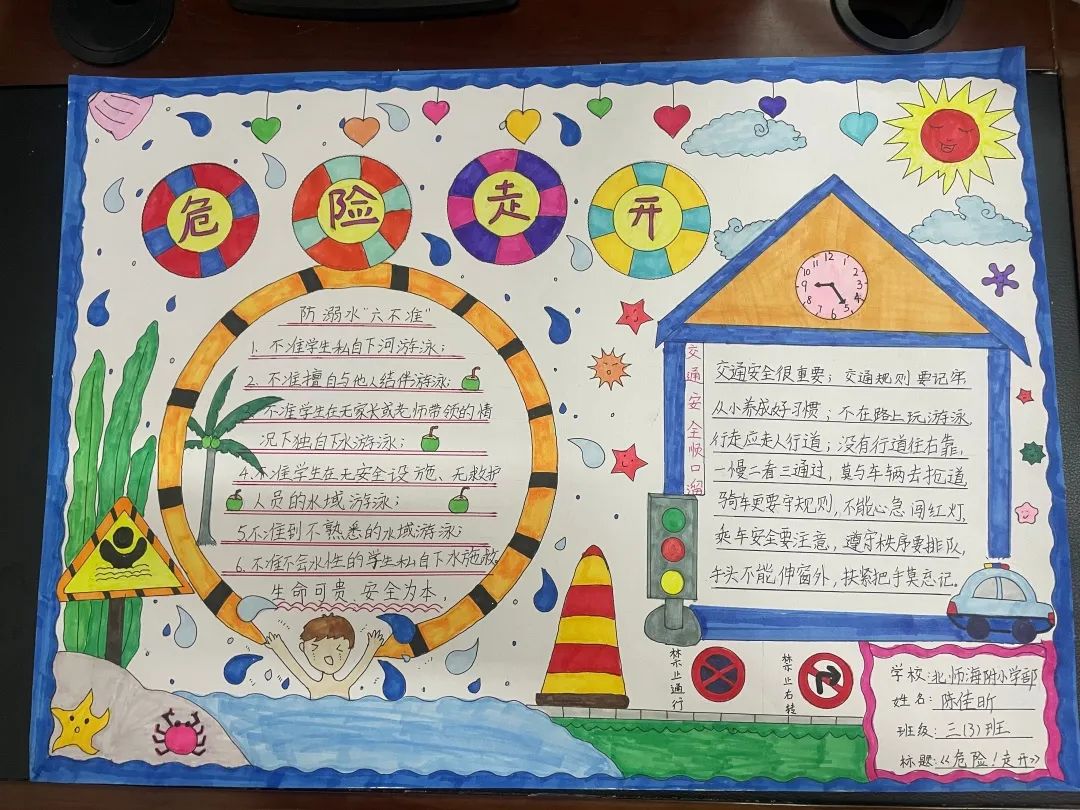 危险走开
防溺水“六不准”
1. 不准学生私自下河游泳；
2. 不准擅自与他人结伴游泳；
3. 不准学生在无家长或老师带领的情
况下独自下水游泳；
4. 不准学生在无安全设施、无救护
人员的水域游泳；
5. 不准到不熟悉的水域游泳；
6. 不准不会水性的学生私自下水施救。
生命可贵、安全为本，
12 1 2 3 4 5 6 7 8 9 10 11
交通安全顺口溜
交通安全很重要；交通规则要记牢
从小养成好习惯；不在路上玩游泳
行走应走人行道；没有行道往右靠，
一慢二看三通过，莫与车辆去抢道
骑车更要守规则，不能心急闯红灯，
乘车安全要注意，遵守秩序要排队，
手头不能伸窗外，扶紧把手莫忘记。
禁止通行
禁止右转
学校：北师海附小学部
姓名：陈佳昕
班级：三（3）班
标题：《危险！走开》